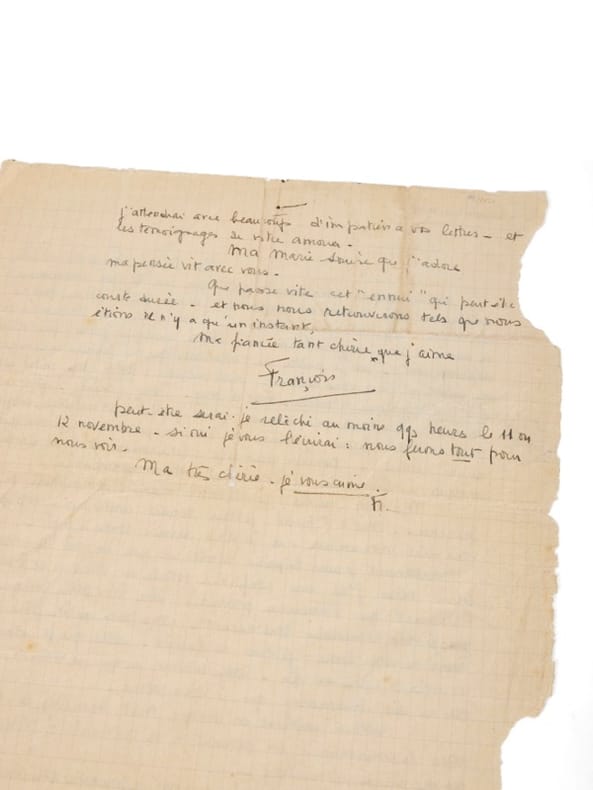 j'attendrai avec beaucoup d'impatience vos lettres - et
les témoignages de votre amour -
Ma Marie Louise que j'adore
ma pensée vit avec vous -
Que passe vite cet "ennui" qui peut être
courte durée - et nous nous retrouverons tels que nous
étions il n'y a qu'un instant,
Ma fiancée tant chérie que j'aime
François
peut-être serai-je relâché au moins qqs heures le 11 ou
12 novembre - si oui je vous l'écrirai : nous ferons tout pour
nous voir.
Ma très chérie - je vous aime.
F.